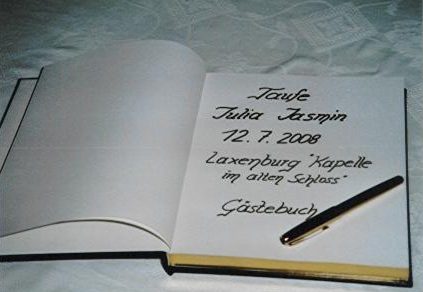 Taufe
Julia Jasmin
12.7.2008
Laxenburg "Kapelle
im alten Schloss"
Gästebuch